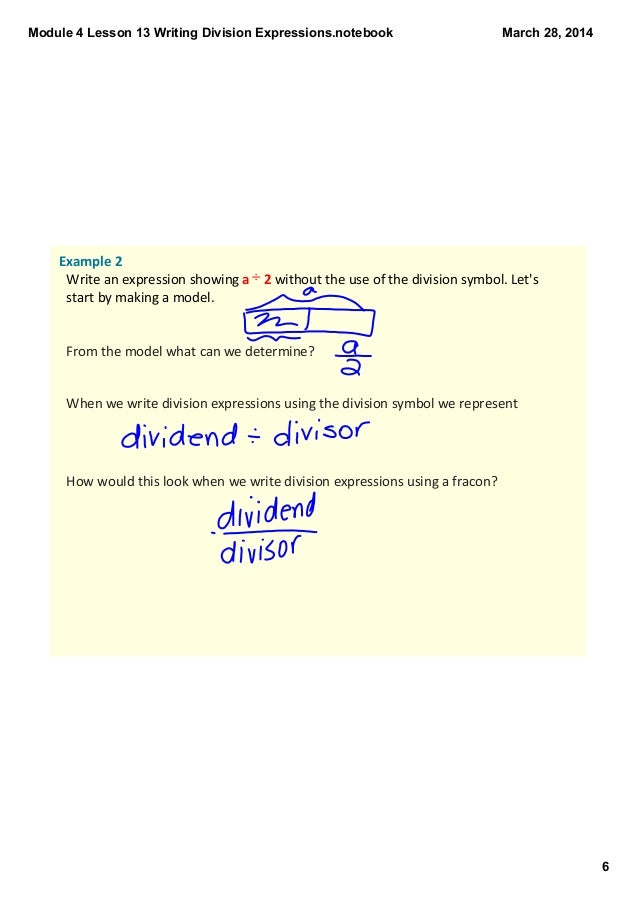 Module 4 Lesson 13 Writing Division Expressions.notebook
March 28, 2014
Example 2
Write an expression showing a ÷ 2 without the use of the division symbol. Let's
start by making a model.
a
From the model what can we determine?
a
2
When we write division expressions using the division symbol we represent
dividend ÷ divisor
How would this look when we write division expressions using a fracon?
dividend
divisor
6